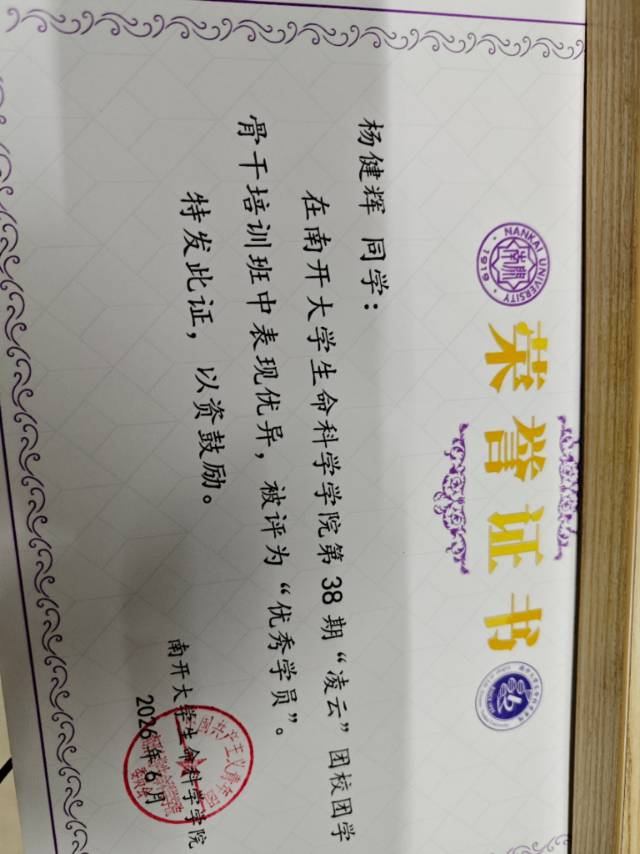 NANKAI UNIVERSITY
1919
荣誉证书
杨健辉 同学：
在南开大学生命科学学院第38期“凌云”团校团学
骨干培训班中表现优异，被评为“优秀学员”。
特发此证，以资鼓励。
南开大学生命科学学院
2026年6月